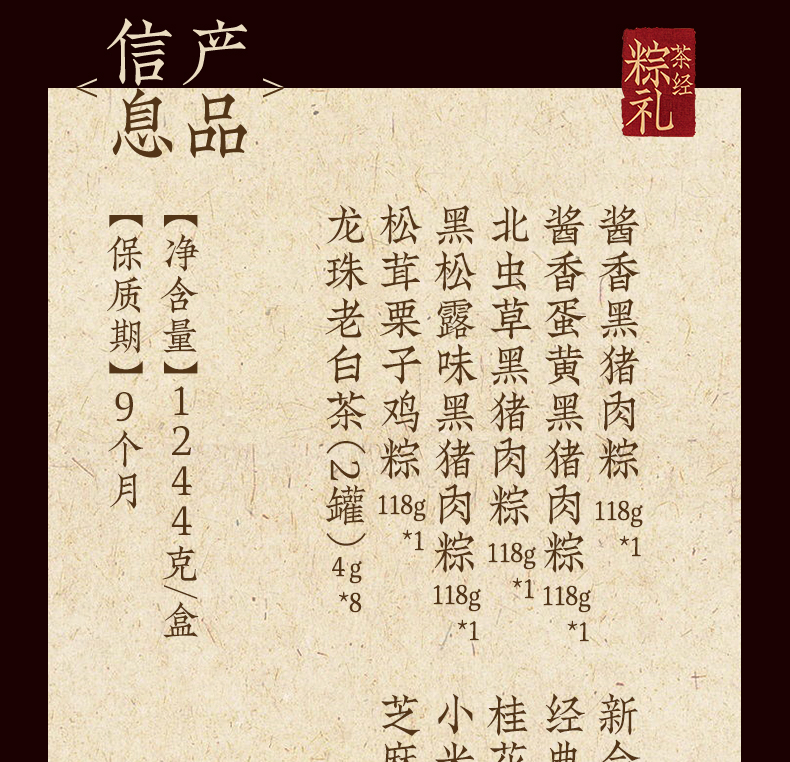 产品
信息
茶经
粽礼
酱香黑猪肉粽118g*1
酱香蛋黄黑猪肉粽118g*1
北虫草黑猪肉粽118g*1
黑松露味黑猪肉粽118g*1
松茸栗子鸡粽118g*1
龙珠老白茶(2罐)4g*8
【净含量】1244克/盒
【保质期】9个月
新会
经典
桂花
小米
芝麻